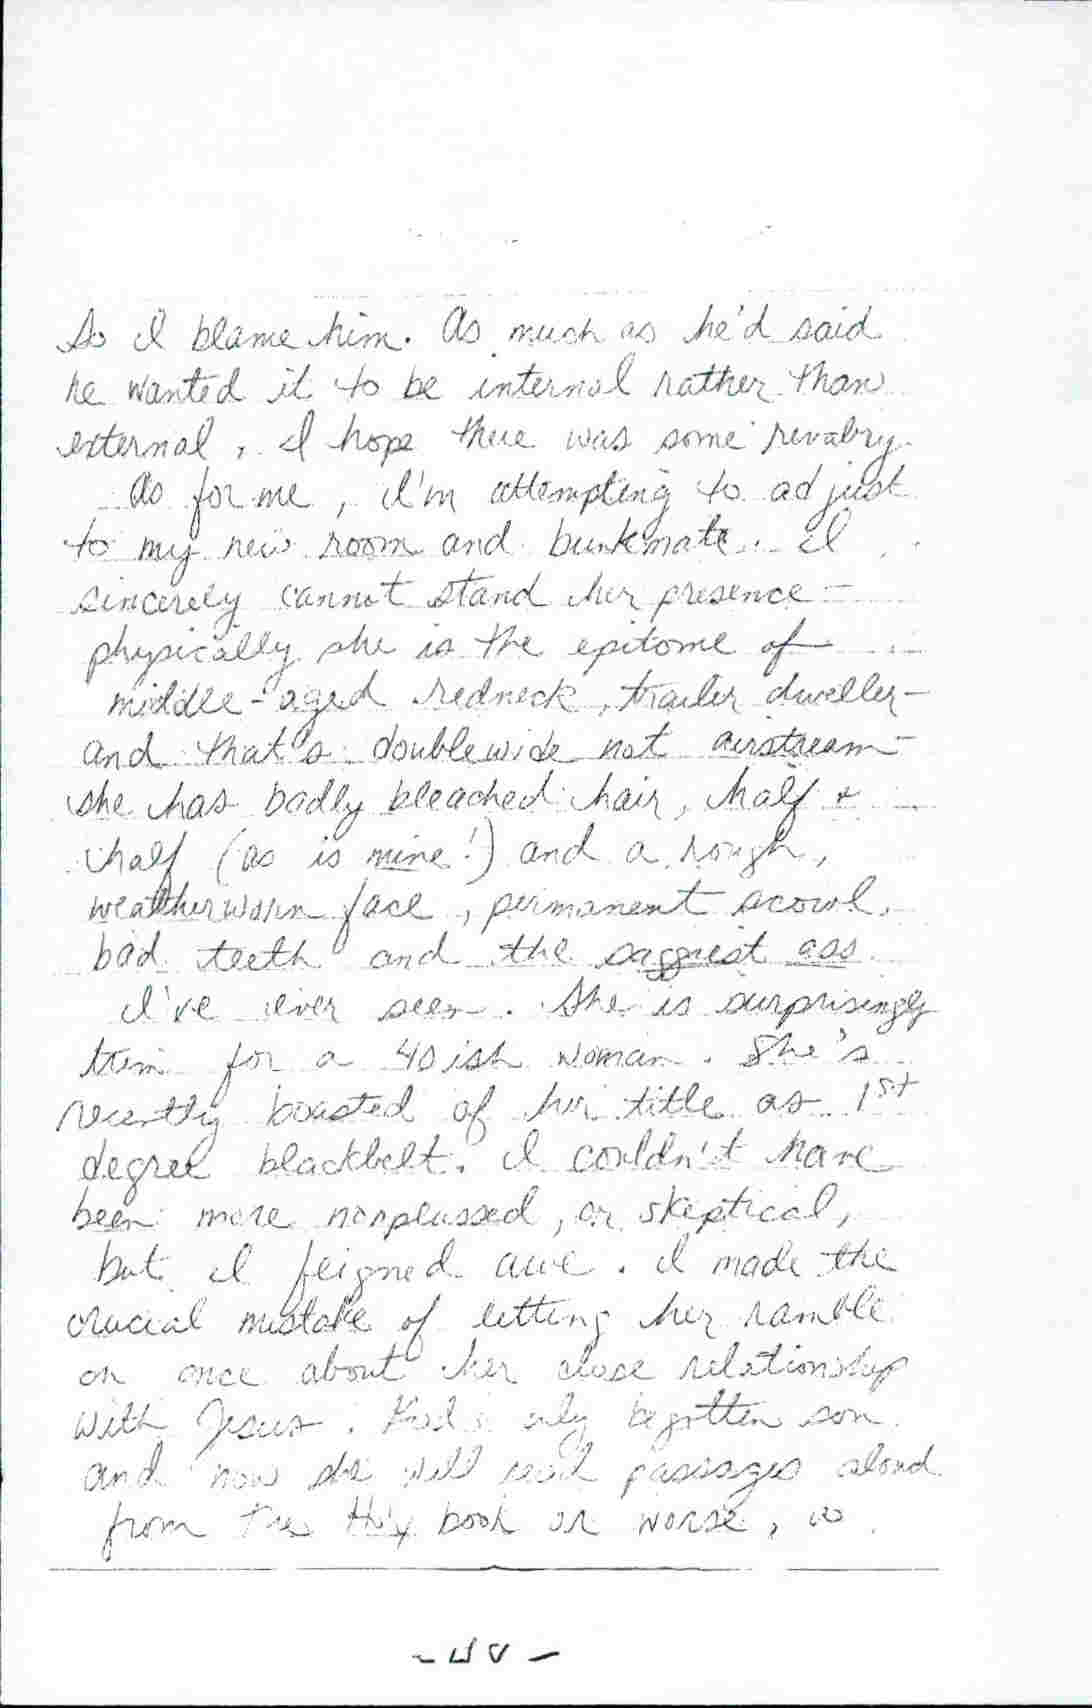 So I blame him. As much as he'd said
he wanted it to be internal rather than
external, I hope there was some rivalry.
As for me, I'm attempting to adjust
to my new room and bunkmate. I
sincerely cannot stand her presence -
physically she is the epitome of
middle-aged redneck, trailer dweller -
and that's doublewide not airstream -
she has badly bleached hair, half &
half (as is mine!) and a rough,
weatherworn face, permanent scowl,
bad teeth and the saggiest ass
I've ever seen. She is surprisingly
trim for a 40ish woman. She's
recently boasted of her title as 1st
degree blackbelt. I couldn't have
been more nonplussed, or skeptical,
but I feigned awe. I made the
crucial mistake of letting her ramble
on once about her close relationship
with Jesus. God's only begotten son
and now she will read passages aloud
from the Holy book or worse,